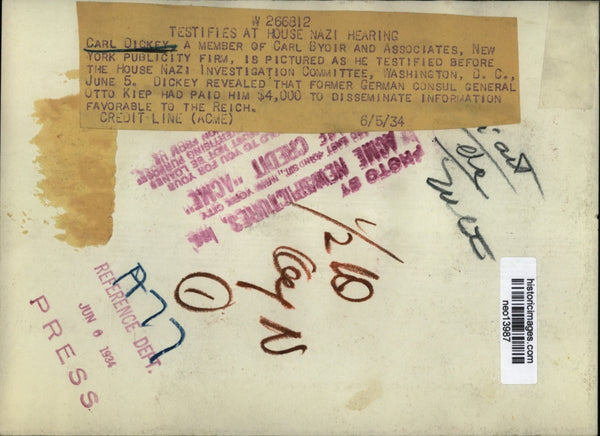 W 266812
TESTIFIES AT HOUSE NAZI HEARING
CARL DICKEY, A MEMBER OF CARL BYOIR AND ASSOCIATES, NEW
YORK PUBLICITY FIRM, IS PICTURED AS HE TESTIFIED BEFORE
THE HOUSE NAZI INVESTIGATION COMMITTEE, WASHINGTON, D. C.,
JUNE 5. DICKEY REVEALED THAT FORMER GERMAN CONSUL GENERAL
OTTO KIEP HAD PAID HIM $4,000 TO DISSEMINATE INFORMATION
FAVORABLE TO THE REICH.
CREDIT LINE (ACME) 6/5/34
PHOTO BY
ACME
NEWSPICTURES, INC.
NEW YORK CITY
CREDIT "ACME"
1/2
1
REFERENCE DEPT.
JUN 6 1934
PRESS
historicimages.com
neo13987